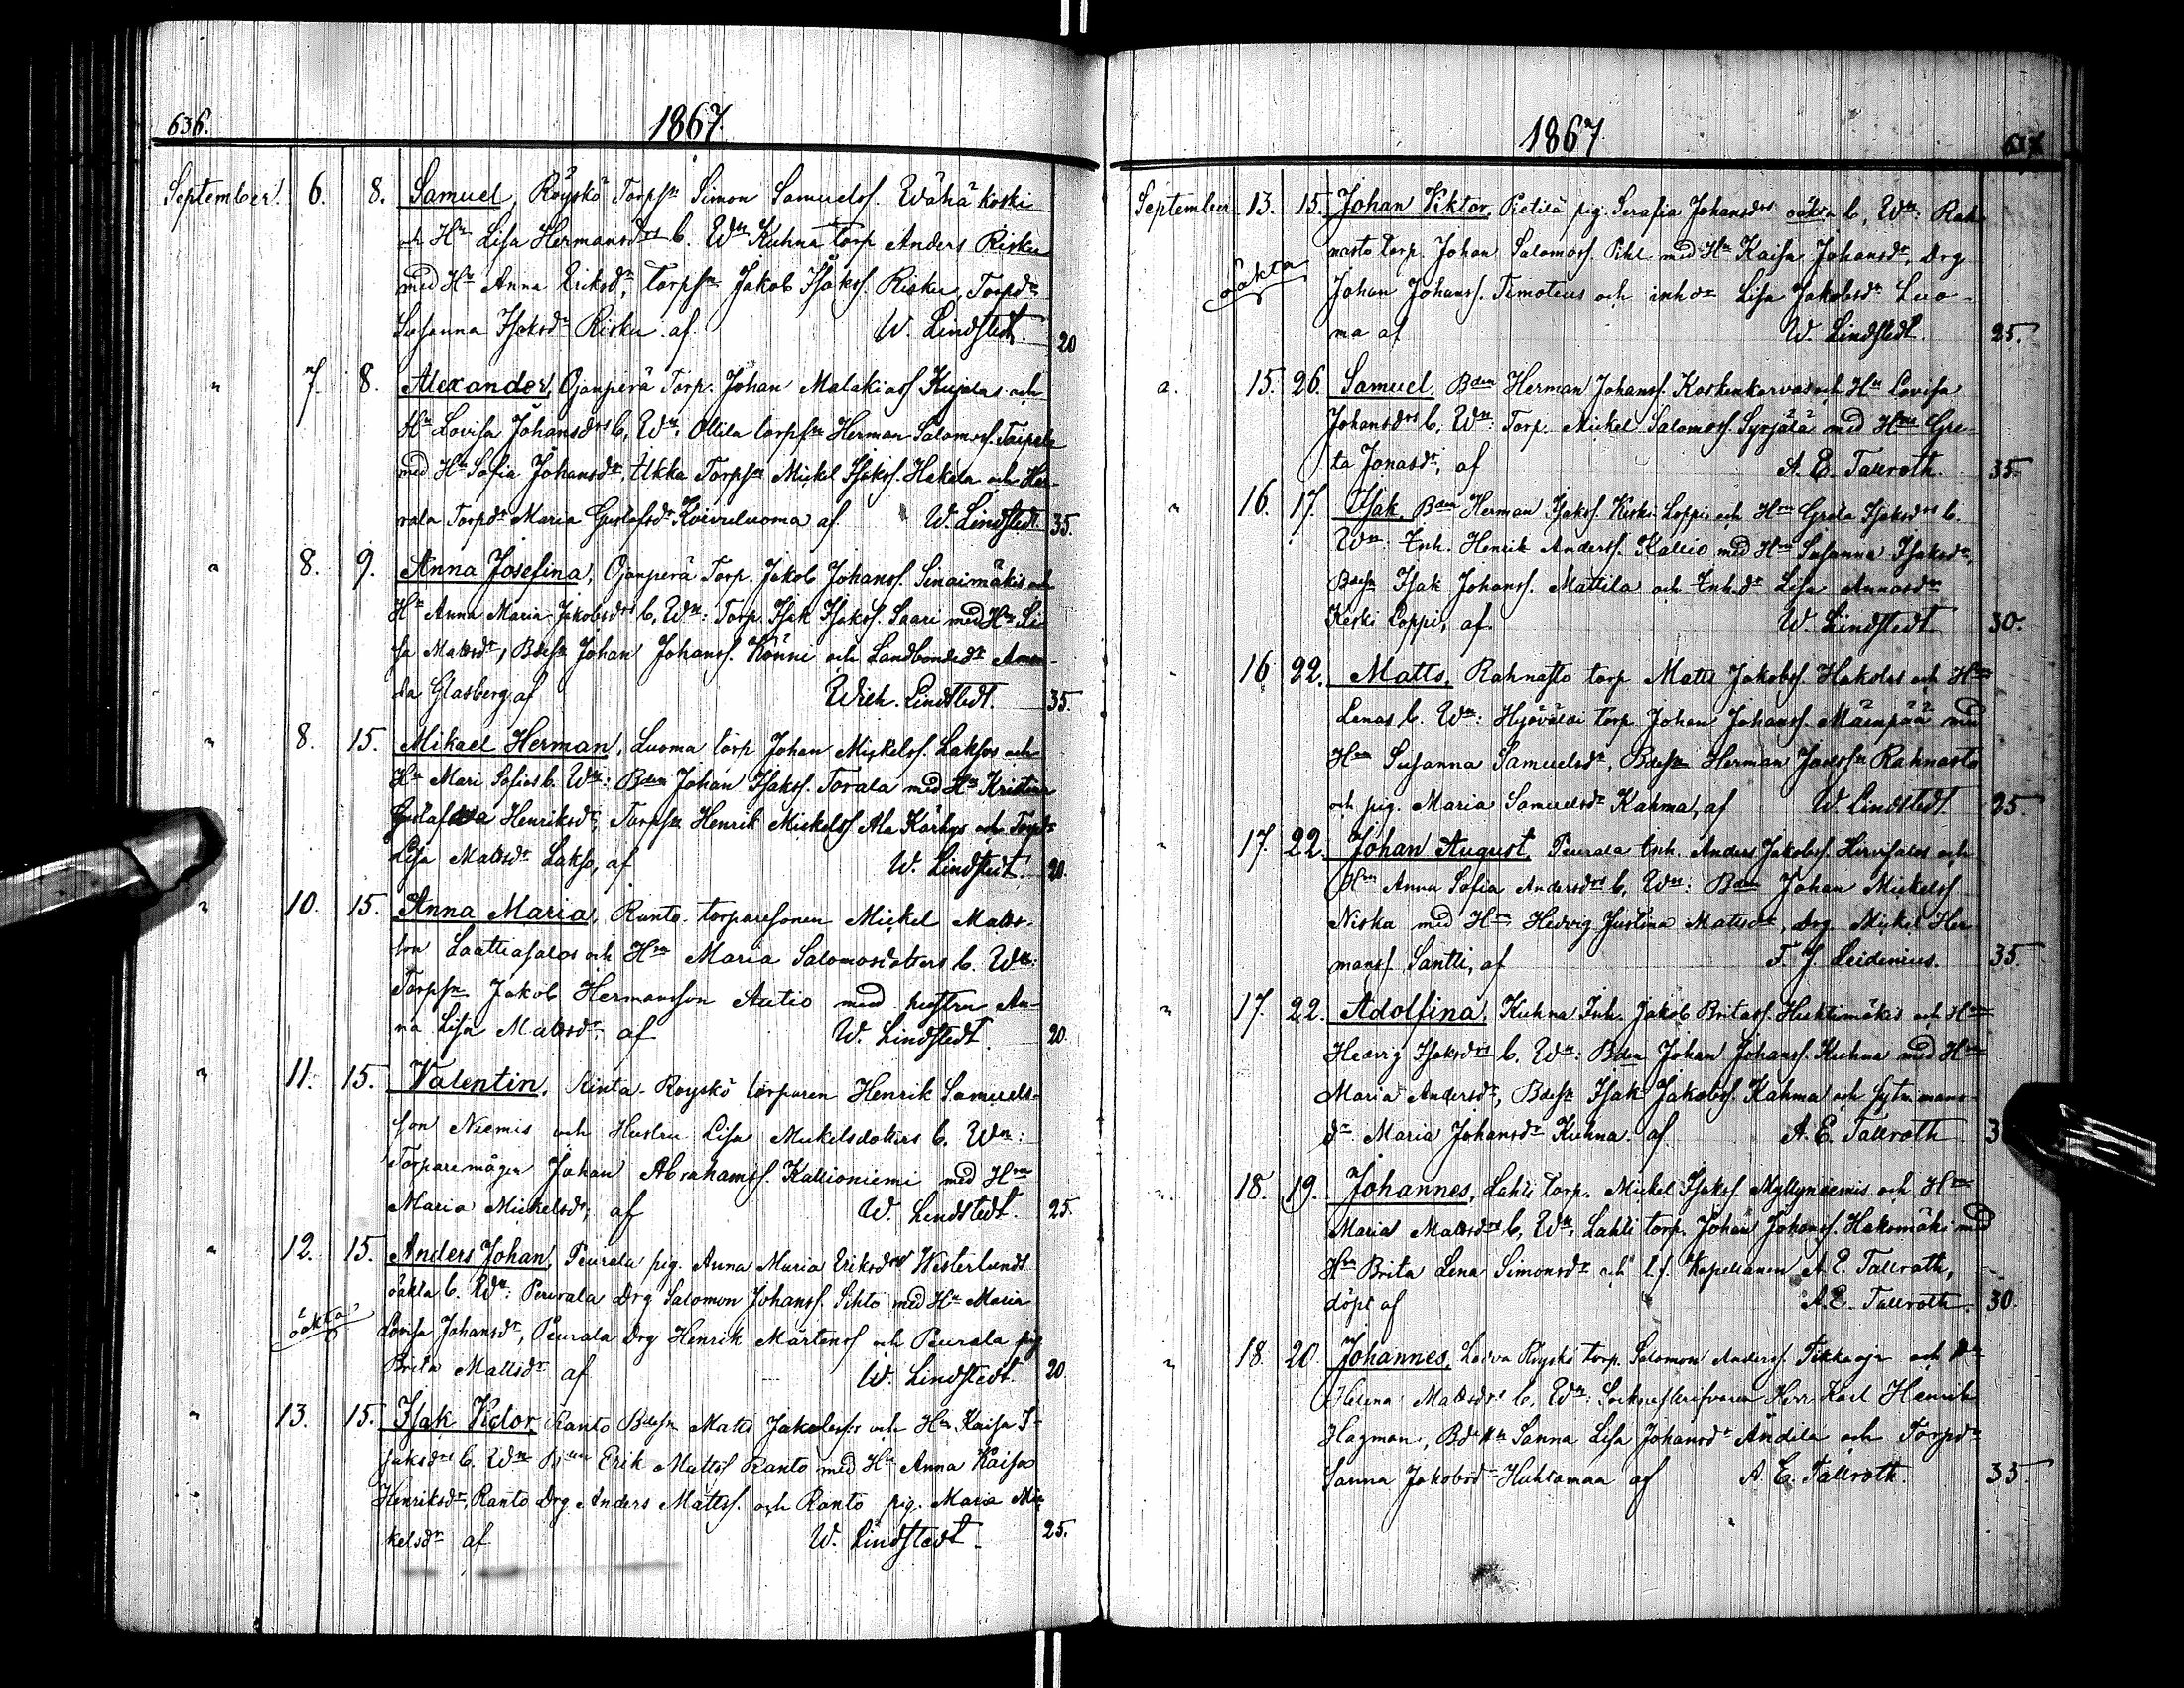 636.
1867.
September. 6. 8. Samuel, Röyskö Torpsn Simon Samuelss. Wähäkoski
och Hu Lisa Hermansdrs b. Wn Kuhna torp Anders Risku
med Hu Anna Eriksdr, torpsn Jakob Isakss. Risku, Torpdr
Susanna Isaksdr Risku af W. Lindstedt. 20
" 7. 8. Alexander, Ojanperä Torp. Johan Malakiass Kujalas och
Hu Lovisa Johansdrs b, Wn: Ollila torpsn Herman Salomss. Taipale
med Hu Sofia Johansdr, Ukka Torpsn Mickel Isakss. Hakala och Her-
rala Torpdr Maria Gustafsdr Koivuluoma af W. Lindstedt. 35.
" 8. 9. Anna Josefina, Ojanperä Torp. Jakob Johanss. Sinaimäkis och
Hu Anna Maria Jakobsdrs b, Wn: Torp. Isak Isakss. Saari med Hu Li-
sa Mattsdr, Bdesn Johan Johanss. Könni och Landbondedr Aman-
da Glasberg af Wilh. Lindstedt. 35.
" 8. 15. Mikael Herman, Luoma torp Johan Mickelss. Laksos och
Hu Mari Sofias b. Wn: Bden Johan Isakss. Torala med Hu Kristina
Henriksdr, Torpsn Henrik Mickelss Ala Kärhys och Torpdr
Lisa Mattsdr Lakso, af W. Lindstedt. 20.
" 10. 15. Anna Maria, Ranto torparesonen Mickel Matts-
son Laattiasalos och Hru Maria Salomosdotters b. Wn:
Torpsn Jakob Hermansson Autio med hustru An-
na Lisa Mattsdr af W. Lindstedt. 20.
" 11. 15. Valentin, Rinta-Röyskö torparen Henrik Samuels-
son Niemis och Hustru Lisa Mickelsdotters b. Wn:
Torparemågen Johan Abrahamss. Kallioniemi med Hru
Maria Mickelsdr, af W. Lindstedt. 25.
" 12. 15. Anders Johan, Peurala pig. Anna Maria Eriksdrs Westerlunds
oäkta b. Wn: Peurala Drg Salomon Johanss. Sihto med Hu Maria
oäkta Lovisa Johansdr, Peurala Drg Henrik Mårtenss och Peurala pig
Brita Mattsdr af W. Lindstedt. 20.
" 13. 15. Isak Viktor, Ranto Bdesn Matts Jakobss:s och Hu Kaisa I-
saksdrs b. Wn Bden Erik Mattss Ranto med Hu Anna Kaisa
Henriksdr, Ranto Drg Anders Mattss. och Ranto pig. Maria Mic-
kelsdr af W. Lindstedt. 25.
1867
September 13. 15. Johan Viktor, Pietilä pig. Serafia Johansdrs oäkta b, Wn: Rah-
nasto torp. Johan Salomoss. Pihl med Hu Kaisa Johansdr, Drg
oäkta Johan Johanss. Timoteus och inhdr Lisa Jakobsdr Luo-
ma af W. Lindstedt. 25.
" 15. 26. Samuel, Bden Herman Johanss. Koskenkorvas och Hu Lovisa
Johansdrs b, Wn: Torp. Mickel Salomoss. Syrjälä med Hru Gre-
ta Jonasdr, af A. E. Tallroth. 35.
" 16. 17. Isak, Bden Herman Isakss. Keski Loppis och Hru Greta Isaksdrs b.
Wn: Inh. Henrik Anderss. Kallio med Hru Susanna Isaksdr,
Bdesn Isak Johanss. Mattila och Inh.dr Lisa Annasdr
Keski Loppi, af. W. Lindstedt 30.
" 16 22. Matts, Rahnasto torp Matts Jakobss. Hakolas och Hru
Lenas b. Wn: Hyöväldi torp. Johan Johanss. Mäenpää med
Hru Susanna Samuelsdr, Bdesn Herman Rahnasto
och pig. Maria Samuelsdr Kahma, af W. Lindstedt. 25.
" 17. 22. Johan August, Peurala Inh. Anders Jakobss. Hirvisalos och
Hru Anna Sofia Andersdrs b, Wn: Bden Johan Mickelss
Niska med Hru Hedvig Justina Mattsdr, Drg Mickel Her-
manss Santti, af F. J. Leidenius. 35.
" 17. 22. Adolfina, Kuhna Inh. Jakob Britass. Huhtimäkis och Hru
Hedvig Isaksdrs b. Wn: Bden Johan Johanss. Kuhna med Hru
Maria Andersdr, Bdesn Isak Jakobss. Kahma och sytnimans-
dr Maria Johansdr Kuhna af A. E. Tallroth
" 18. 19. Johannes, Lahti torp. Mickel Isakss. Myllyniemis och Hru
Maria Mattsdrs b, Wn: Lahti torp. Johan Johanss. Hakomäki med
Hru Brita Lena Simonsdr och t.f. Kapellanen A. E. Tallroth,
döpt af A. E. Tallroth. 30.
" 18. 20. Johannes, Latva Röyskö torp. Salomon Anderss. Tikkaoja och Hu
Helena Mattsdrs b, Wn: Sockneskrifvaren Herr Karl Henrik
Hagman, Bd Hu Sanna Lisa Johansdr Ändilä och Torpdr
Sanna Jakobsdr Huhtamaa af A. E. Tallroth. 35.